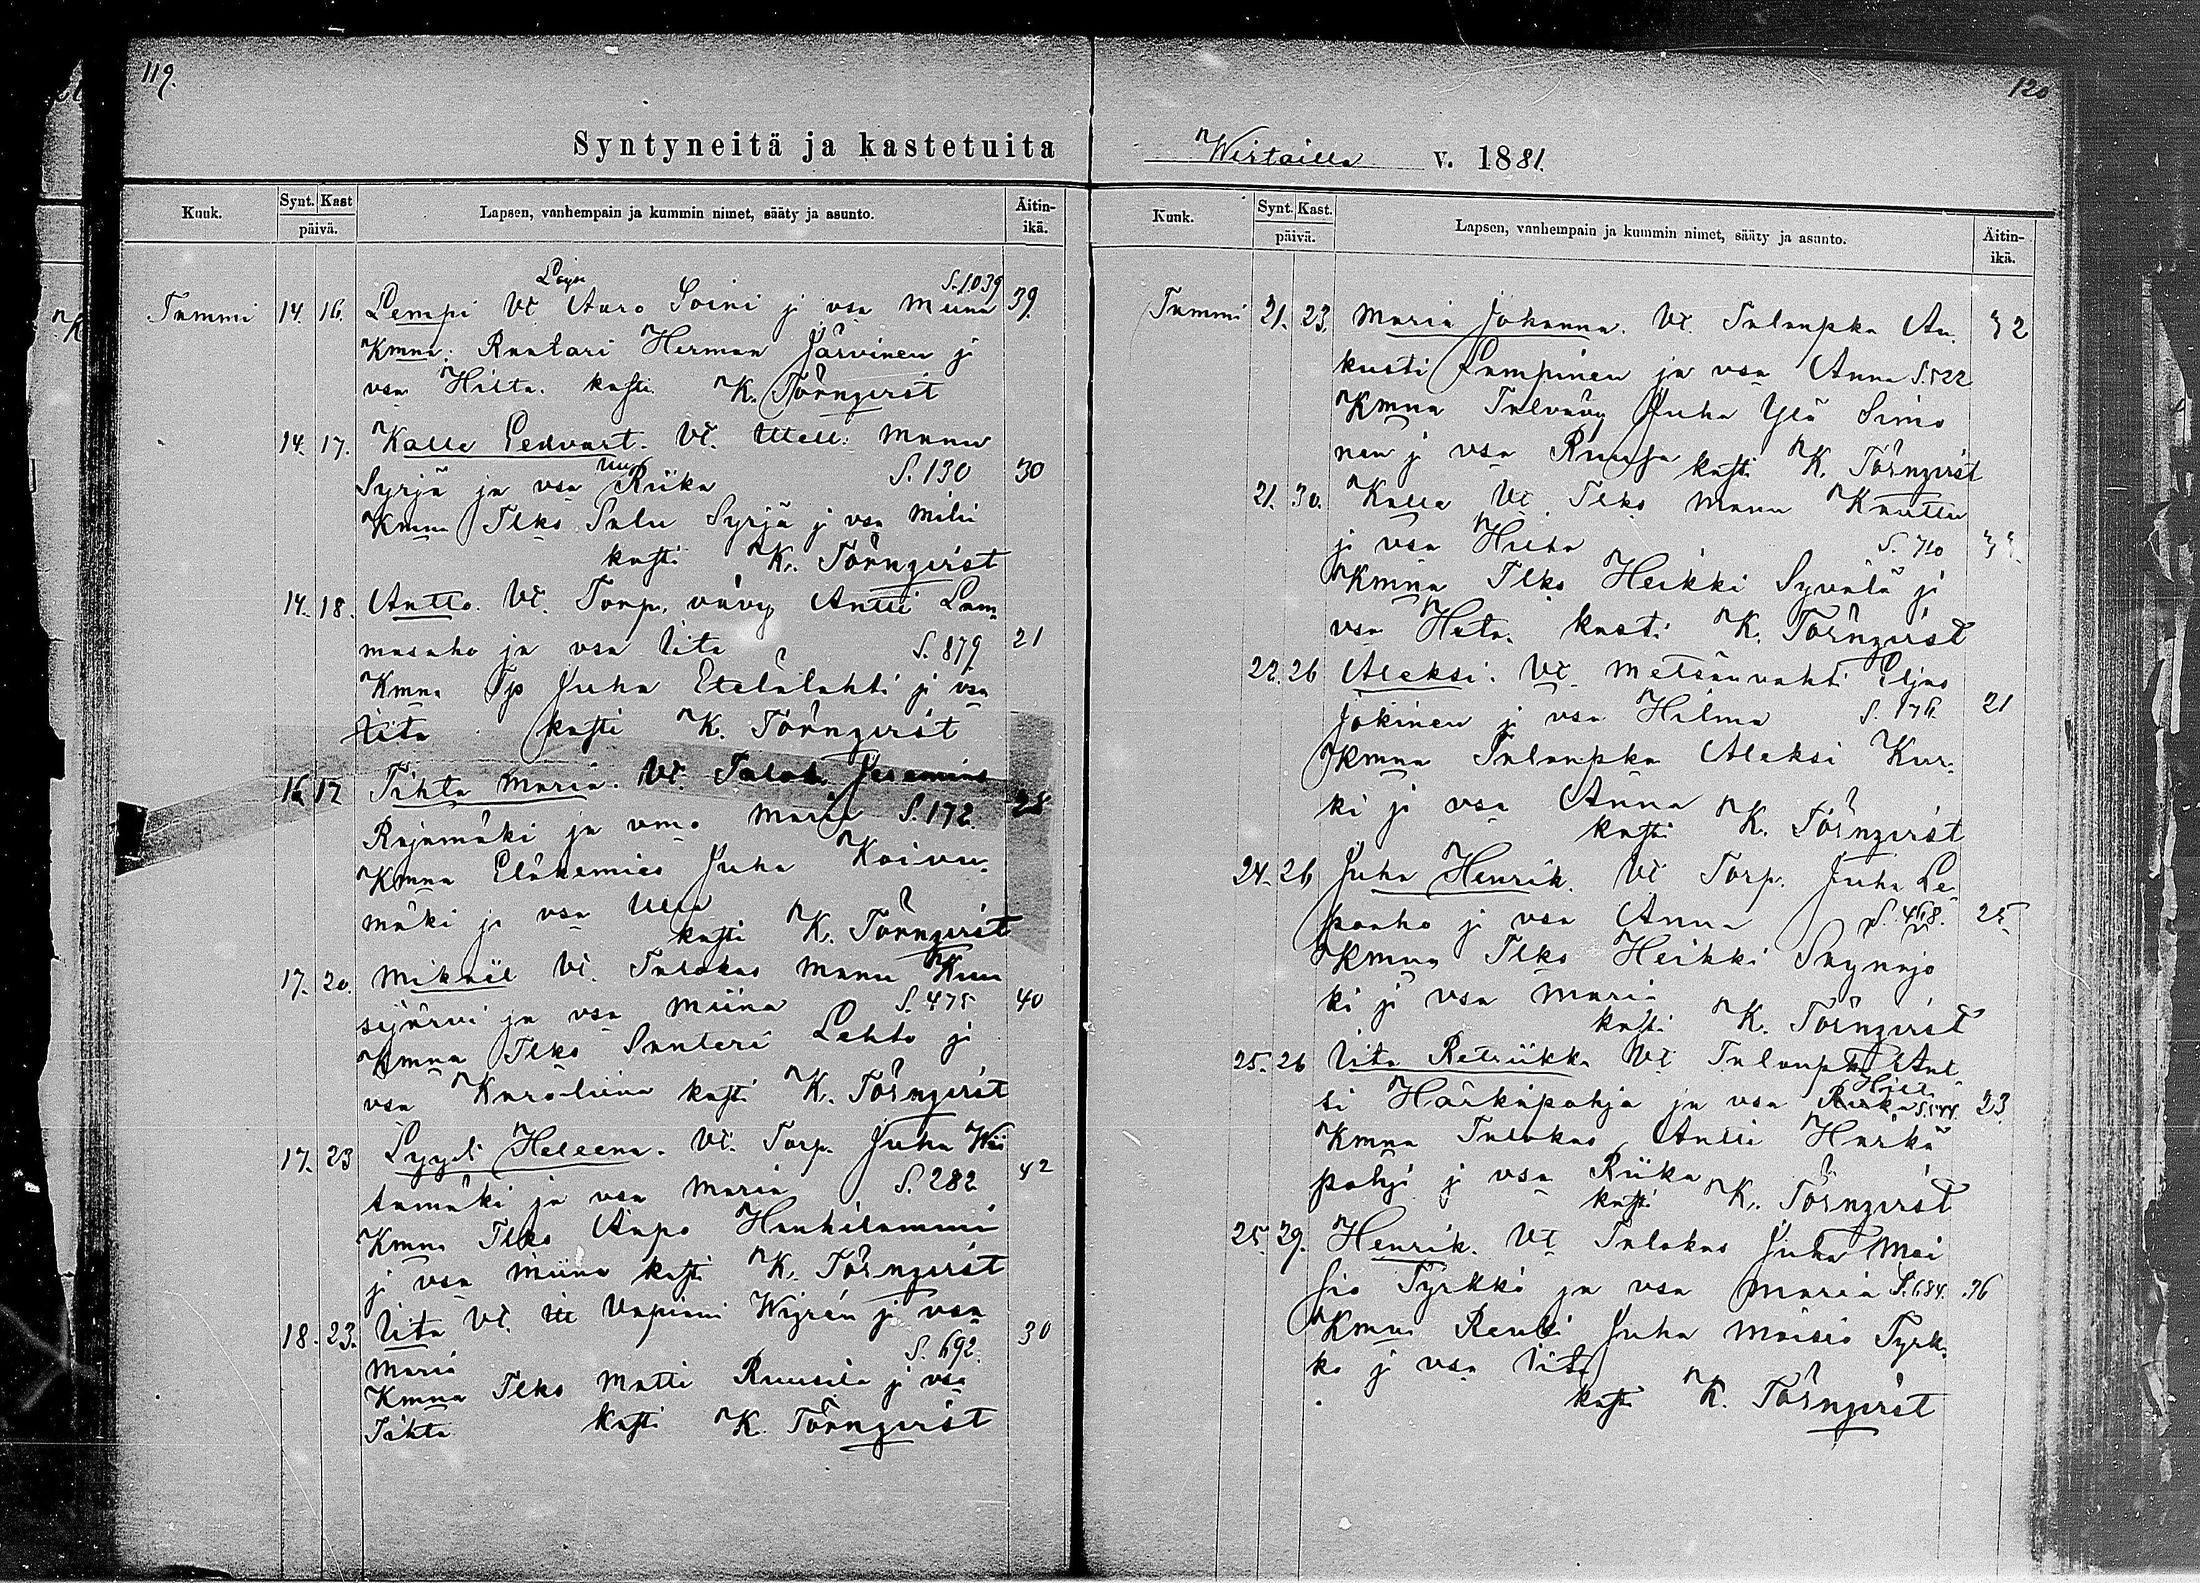 119.
Syntyneitä ja kastetuita
Kuuk.
Synt. Kast
päivä.
Lapsen, vanhempain ja kummin nimet, sääty ja asunto.
Äitin-
ikä.
S. 1039
Tammi 14. 16. Lempi Vt Aaro Soini j vsa Miina 39.
Kmna: Räätäri Herman Järvinen j
vsa Hilta. kasti K. Törnqvist
14. 17. Kalle Eedvart. Vt. Itell: Manu
Syrjä ja vsa Riika S. 130 30
Kmna Tlks Salu Syrjä j vsa
kasti K. Törnqvist
14. 18. Antto. Vt. Torp. vävy Antti Lam
masaho ja vsa Iita S. 879 21
Kmna Juha Etelälahti j vsa
Iita kasti K. Törnqvist
16 17 Tihta Maria. Vt. Talok. Jeremias
Rajamäki ja vmo Maria S. 172. 28
Kmna Eläkemies Juha Koivu-
mäki j vsa Ulla
kasti K. Törnqvist
17. 20. Mikael Vt. Talokas Manu Kuu
sijärvi ja vsa Miina S. 475 40
Kmna Tlks Santeri Lehto j
vsa Karoliina kasti K. Törnqvist
17. 23 Lyydi Heleena. Vt. Torp. Juha Wii
tamäki ja vsa Maria S. 282 42
Kmna Tlks Aapo Hauhilammi
j vsa Miina kasti K. Törnqvist
18. 23. Iita Vt. Itt Vapiani Wigrén j vsa
Maria S. 692. 30
Kmna Tlks Matti Ruusila j vsa
Tihta kasti K. Törnqvist
120
Wirtailla v. 1881.
Kuuk.
Synt. Kast.
päivä.
Lapsen, vanhempain ja kummin nimet, sääty ja asunto.
Äitin-
ikä.
Tammi 21. 23. Maria Johanna. Vt. Talonpka Au-
kusti Lampinen ja vsa Anna S. 522 32
Kmna Talvävy Juha Ylä Simo
nen j vsa kasti K. Törnqvist
21. 30. Kalle Vt. Tlks Manu Knuttu
j vsa S. 710
Kmna Tlks Heikki Syvälä j
vsa Heta. kasti K. Törnqvist
22. 26 Aleksi. Vt. Metsänvahti Eljas
Jokinen j vsa Hilma S. 176. 21
Kmna Talonpka Aleksi Kur-
ki j vsa Anna
kasti K. Törnqvist
24. 26 Juha Henrik. Vt Torp. Juha Le
paaho j vsa Anna S. 468. 25
Kmna Tlks Heikki Saynäjo
ki j vsa Maria
kasti K. Törnqvist
25. 26 Iita Retriikka Vt Talonpka Ant
ti Härkäpohja ja vsa 23
Kmna Talokas Antti Härkä
pohj j vsa Riika
kasti K. Törnqvist
25. 29. Henrik. Vt Talokas Juha Moi
sio Tyrkkö ja vsa Maria S. 684. 36
Kmna Renki Juha Moisio Tyrk-
kö j vsa Iita
kasti K. Törnqvist